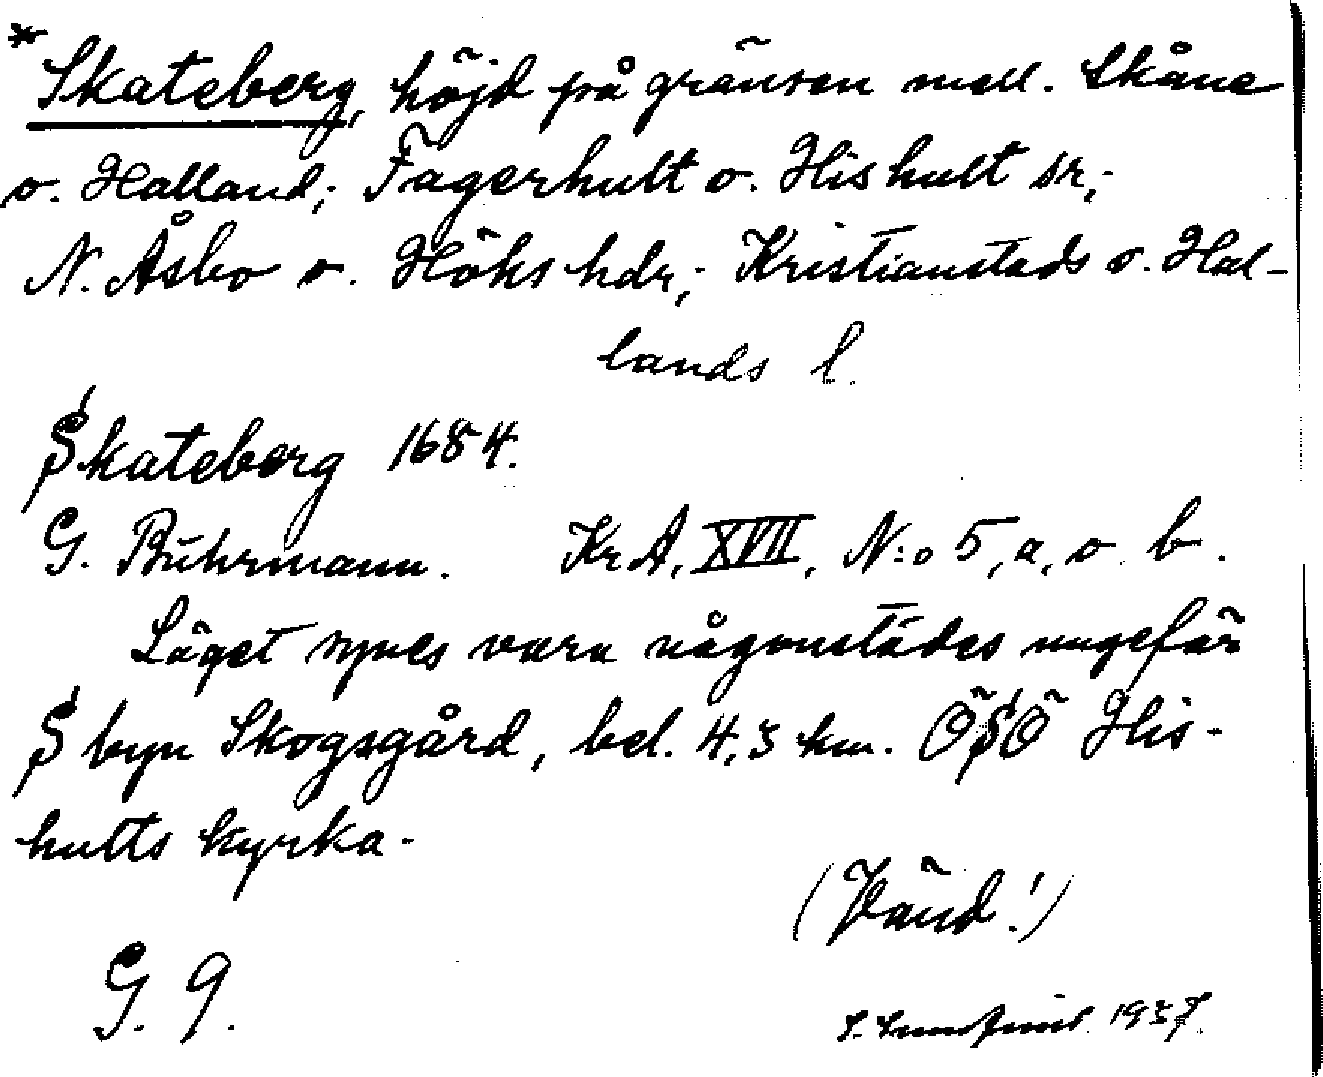 * Skateberg, höjd på gränsen mell. Skåne
o. Halland; Fagerhult o. Hishult sr;
N. Åsbo o. Höks hdr; Kristianstads o. Hal-
lands l.
Skateberg 1684.
G. Buhrmann. Kr A, XVII, N:o 5, a, o b.
Läget synes vara någonstädes ungefär
S byn Skogsgård, bel. 4,3 km. ÖSÖ His-
hults kyrka.
(Vänd!)
G. 9.
1937.